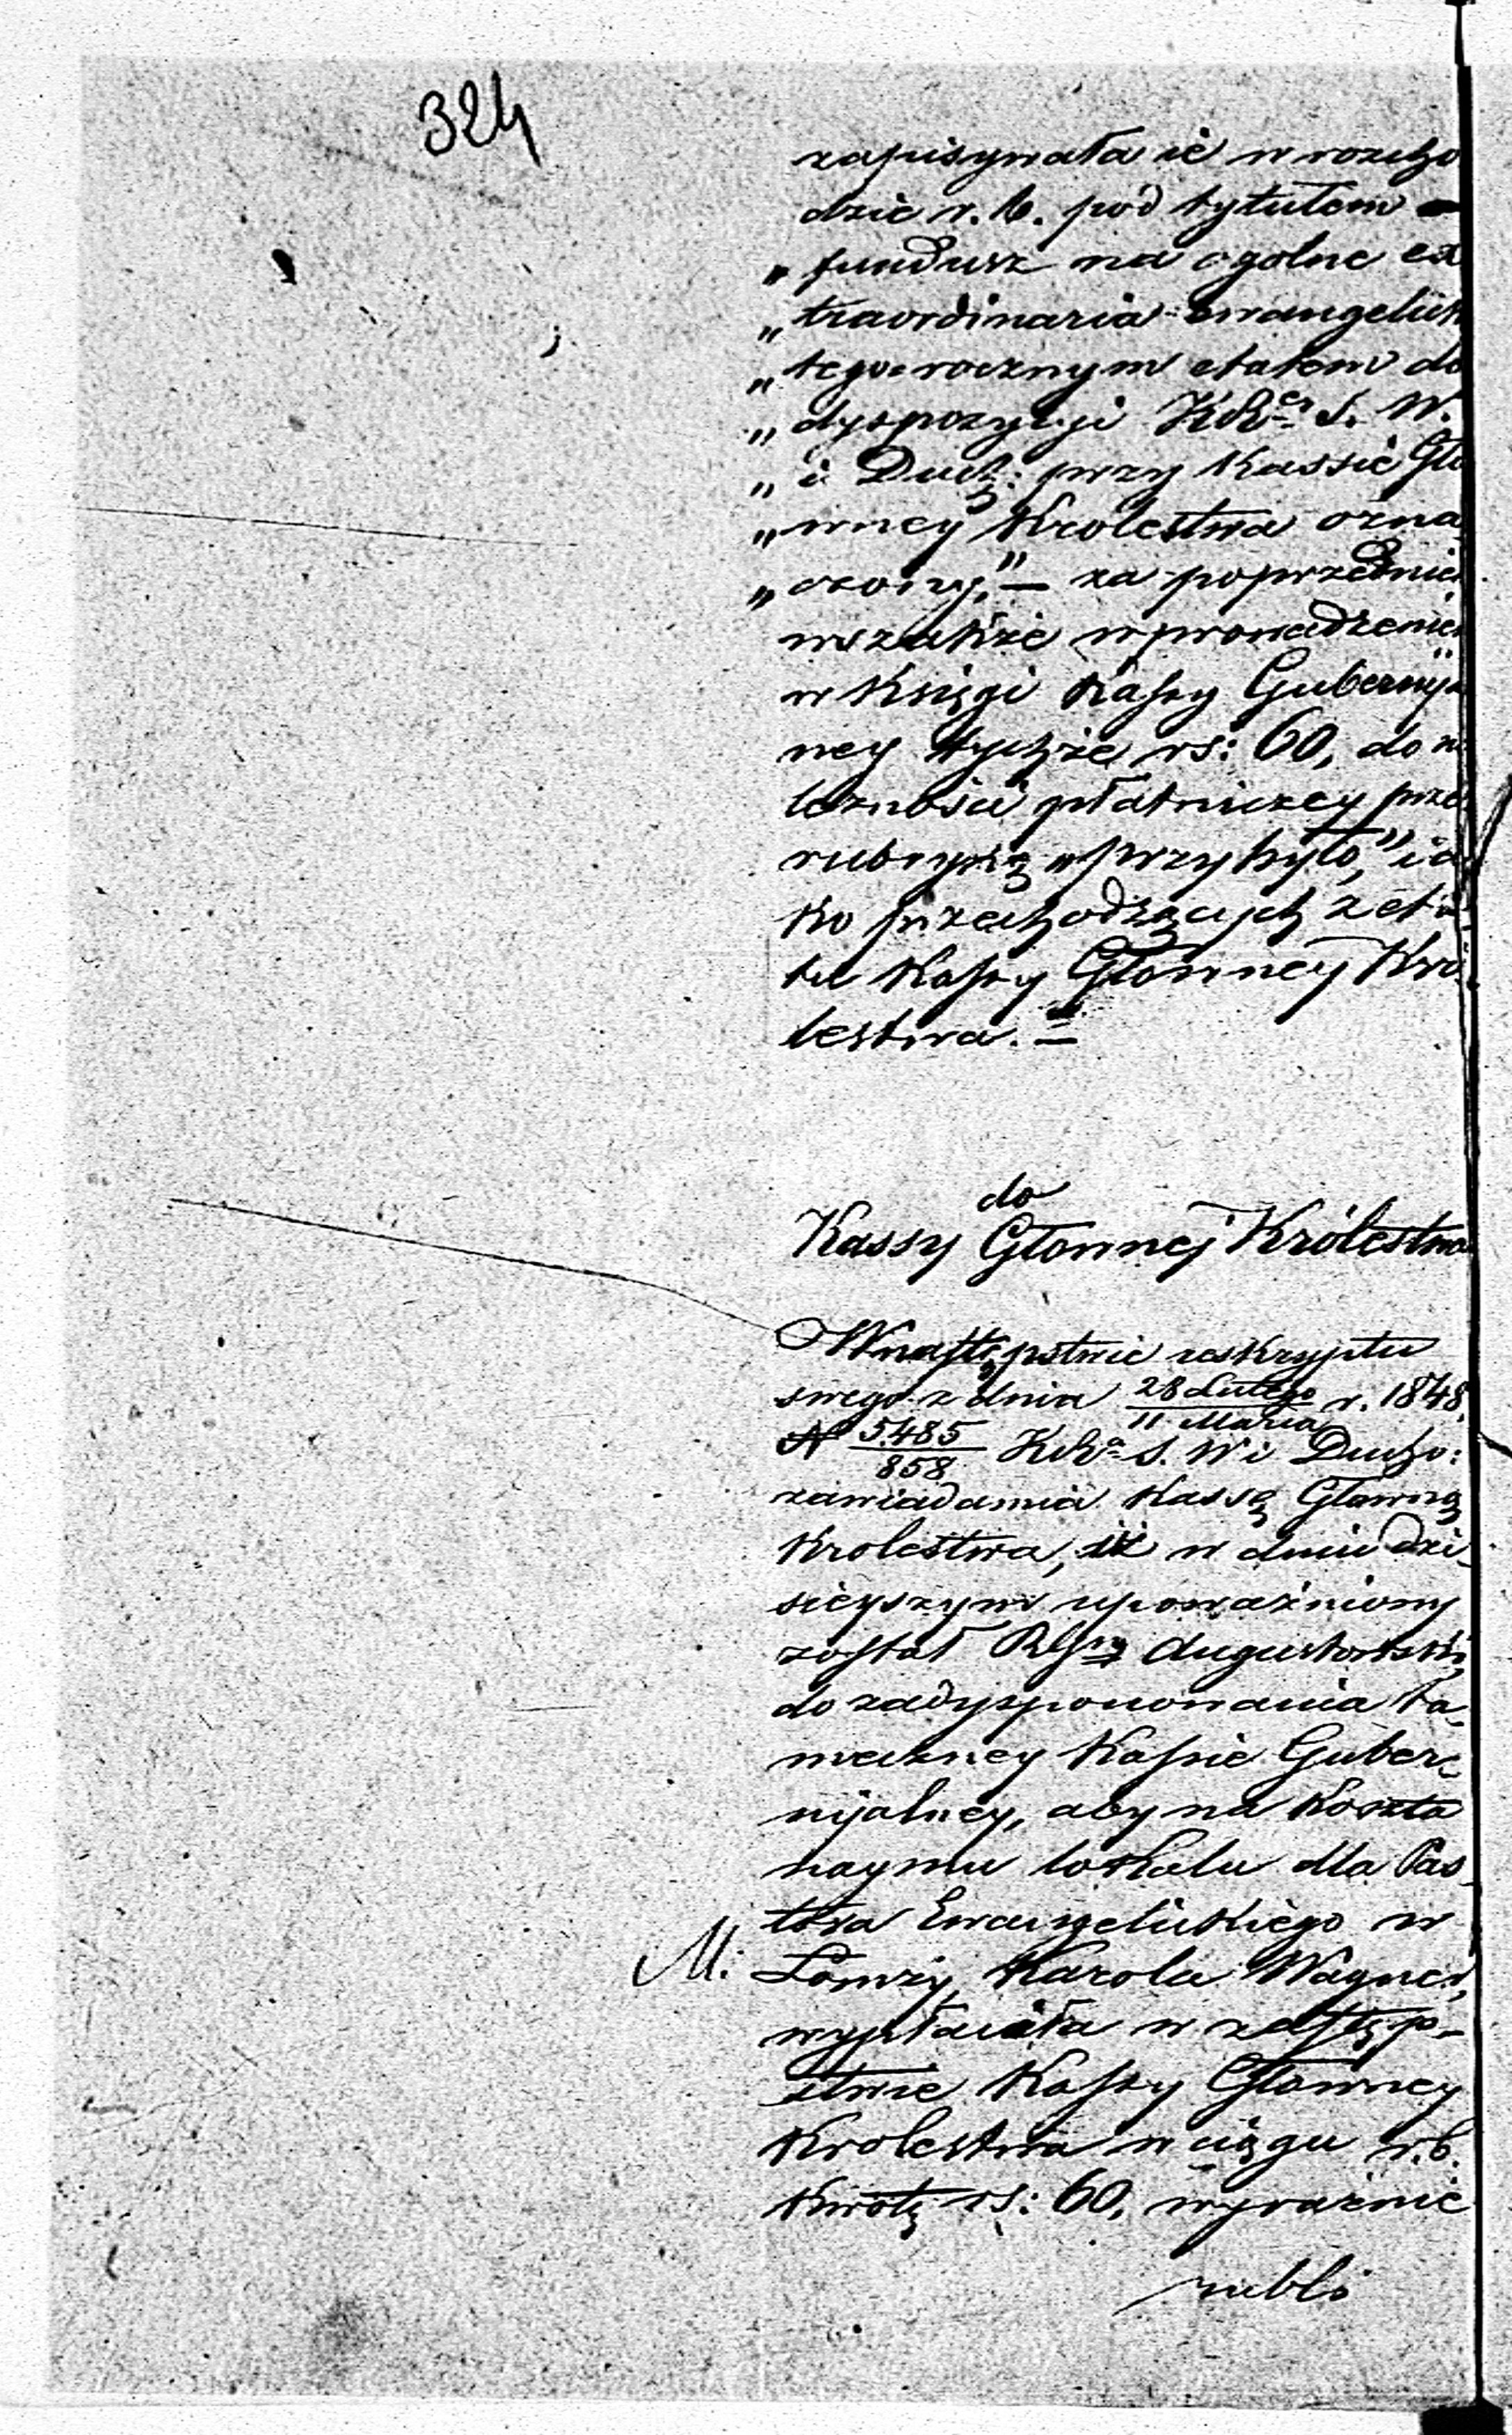 324
zapisywała ie w rozcho
dzie r. b. pod tytułem —
„ fundusz na ogolne ex
„ traordinaria ewangelick
„ tego=rocznym etatem do
„ dyspozycyi KRz̲ S. W.
„ i Duch: przy Kassie Gło
„ wney Krolestwa ozna
„ czony," — za poprzednie
wszakże wprowadzenie
w Księgi Kassy Gubernyal
ney tychże rs: 60, do n
leżności płatniczey prze
rubrykę „przybyło," ia
ko przechodzących z eta
tu Kassy Głowney Kro
lestwa. —
do
Kassy Głownej Królestwa
W następstwie reskryptu
swego z dnia 28 Lutego / 11 Marca r. 1848
N 5485/858 KRz̲ S. W i Ducho:
zawiadamia Kassę Głowną
Krolestwa, iż w dniu dzi
sieyszym upoważniony
został RGny Augustowski
do zadysponowania ta-
meczney Kassie Guber-
nijalney, aby na koszta
naymu lokalu dla Pas
tora Ewangelickiego w
M: Łomży, Karola Wagner,
wypłaciła w zastęp-
stwie Kassy Głowney
Krolestwa w ciągu r. b.
kwotę rs: 60, wyraźnie
rubli